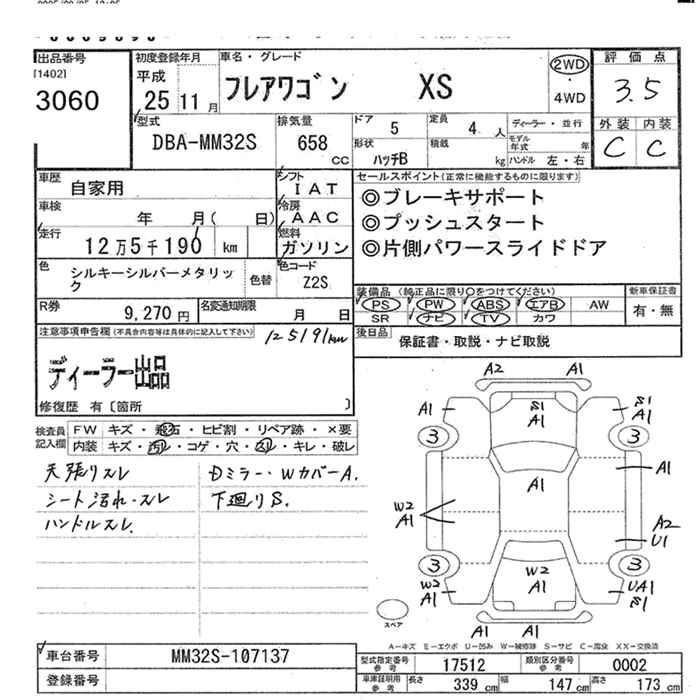 出品番号
[1402]
3060
初度登録年月
平成
25 11 月
車名・グレード
フレアワゴン XS
2WD
・
4WD
評価点
3.5
外装 内装
C C
型式
DBA-MM32S
排気量
658
CC
ドア
5
定員
4 人
形状
ハッチB
積載
kg
ディーラー・並行
モデル年式 年
ハンドル 左・右
車歴
自家用
車検
年 月( 日)
走行
12万5千190 km
シフト
I AT
冷房
A AC
燃料
ガソリン
セールスポイント(正常に機能するものに限ります)
◎ブレーキサポート
◎プッシュスタート
◎片側パワースライドドア
色
シルキーシルバーメタリック
色替
色コード
Z2S
R券
9,270 円
名変通知期限
月 日
装備品(純正品に限り〇をつけてください)
PS PW ABS エアB AW
SR ナビ TV カワ
新車保証書
有・無
後日品
保証書・取説・ナビ取説
注意事項申告欄(不具合内容等は具体的に記入して下さい)
125191km
ディーラー出品
修復歴 有〔箇所 〕
検査員記入欄
FW キズ・飛石・ヒビ割・リペア跡・×要
内装 キズ・汚れ・コゲ・穴・スレ・キレ・破レ
天張りスレ
シート汚れ・スレ
ハンドルスレ
Dミラー・WカバーA.
下廻りS.
A2 A1
A1 S1 A1 S1 A1
3 3
A1 A1
W2 A1
A2 U1
3 3
W2 A1 W2 A1 UA1 S1
A1 A1
スペア
A-キズ E-エクボ U-凹み W-補修跡 S-サビ C-腐食 XX-交換済
車台番号 MM32S-107137
登録番号
型式指定番号 参考 17512
類別区分番号 参考 0002
車庫証明用 参考 長さ 339 cm 幅 147 cm 高さ 173 cm